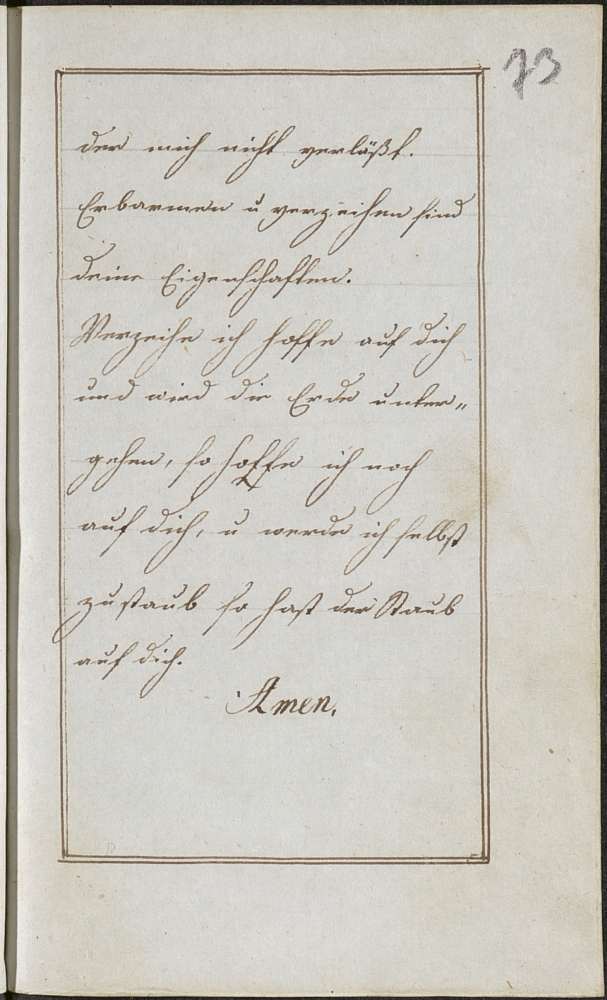 73
der mich nicht verläßt.
Erbarmen u verzeihen sind
deine Eigenschaften.
Verzeihe ich hoffe auf dich
und wird die Erde unter„
gehen, so hoffe ich noch
auf dich, u werde ich selbst
zu staub so hast der Staub
auf dich.
Amen.